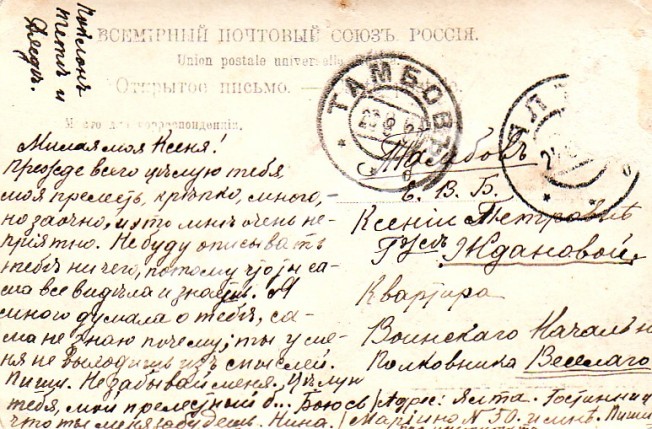 Поклонъ
тетѣ и
дядѣ.
ВСЕМІРНЫЙ ПОЧТОВЫЙ СОЮЗЪ. РОССІЯ.
Union postale universelle.
Открытое письмо.
Мѣсто для корреспонденціи.
ТАМБОВЪ
Милая моя Ксеня!
Прежде всего цѣлую тебя
моя прелесть, крѣпко, много,
но заочно, и это мнѣ очень не-
пріятно. Не буду описывать
тебѣ ничего, потому что ты са-
ма все видѣла и знаешь. Я
много думала о тебѣ, са-
ма не знаю почему; ты у ме-
ня не выходишь изъ мыслей.
Пиши. Не забывай меня. Цѣлую
тебя, мой прелестный б... Боюсь
что ты меня забудешь. Нина.
Тамбовъ
Е. В. Б.
Ксеніи Петровнѣ
Ждановой.
Квартира
Воинскаго Начальн
Полковника Веселаго
Адрес: Ялта. Гостинниц
Марино N 50. и мнѣ. Пиши